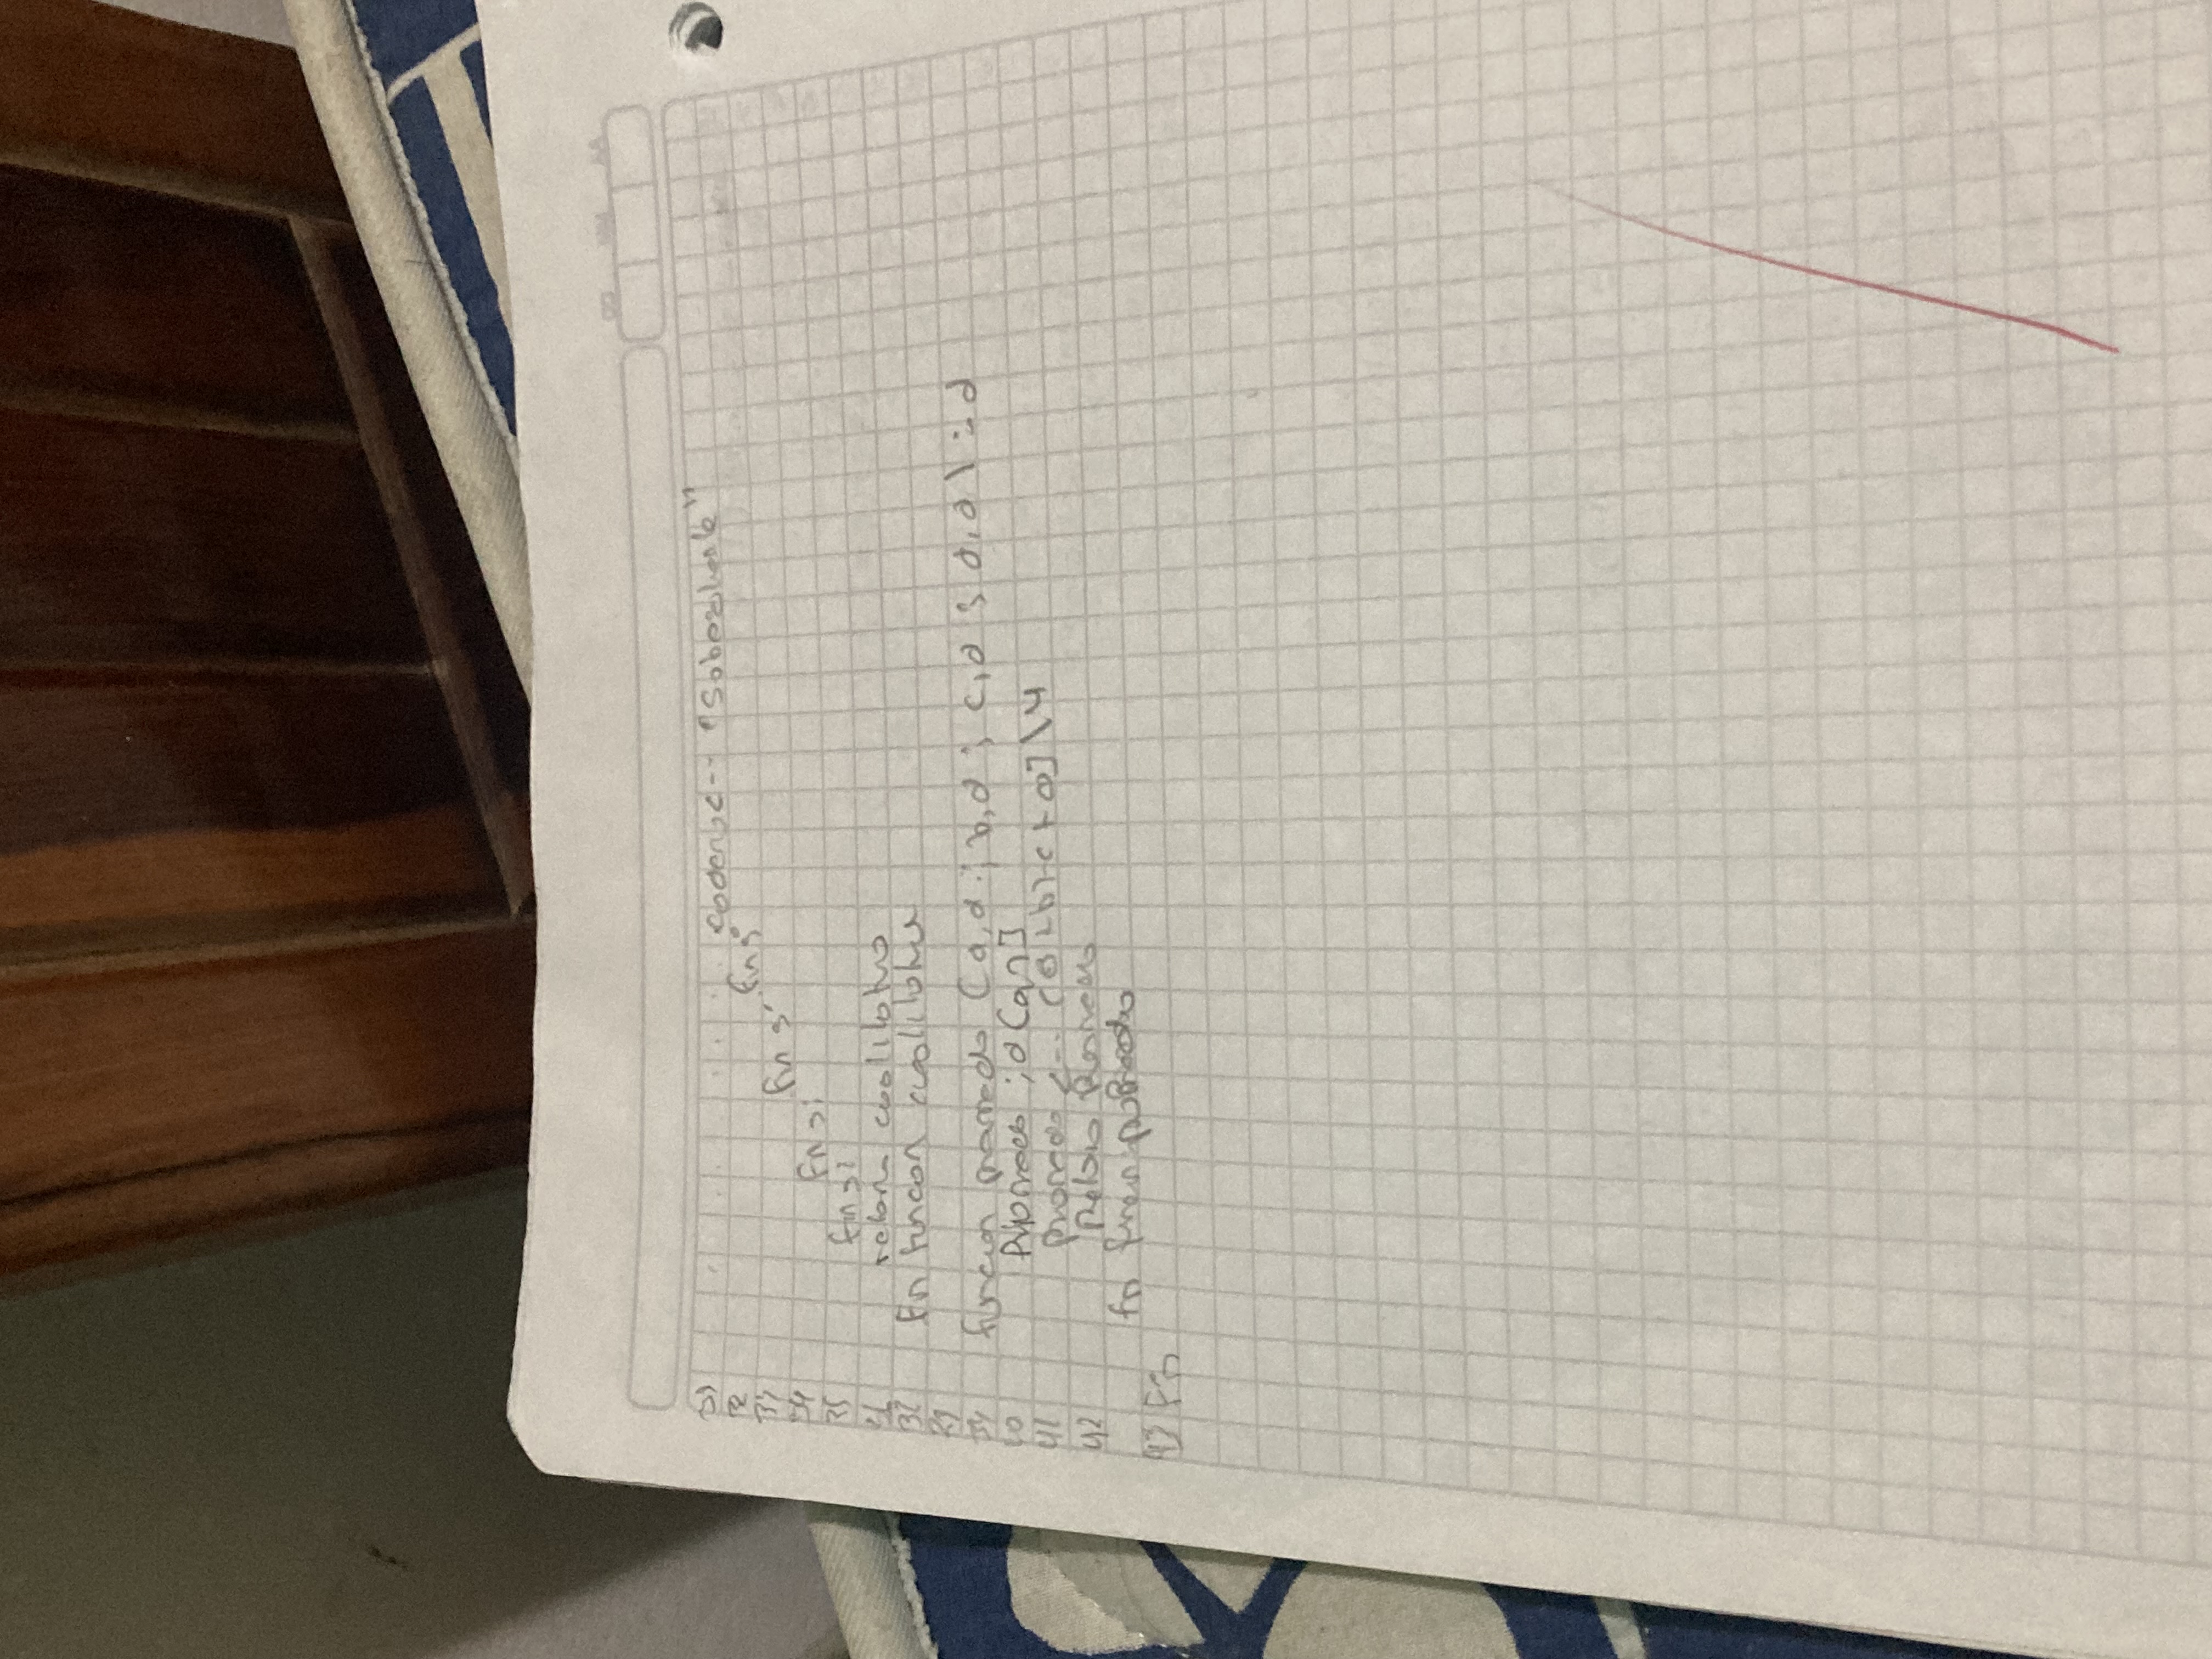 DD MM AA
31 cadena <-- "Sobresaliente"
32 fin si
33 fin si
34 fin si
35 fin si
retorna cualitativo
37 fin funcion cualitativo
funcion promedio (a,d ; b,d ; c,d ; d,d) : d
Promedio ; d
41 promedio <-- (a+b+c+d] \ 4
42 Retorna Promedio
fin funcion promedio
43 Fin